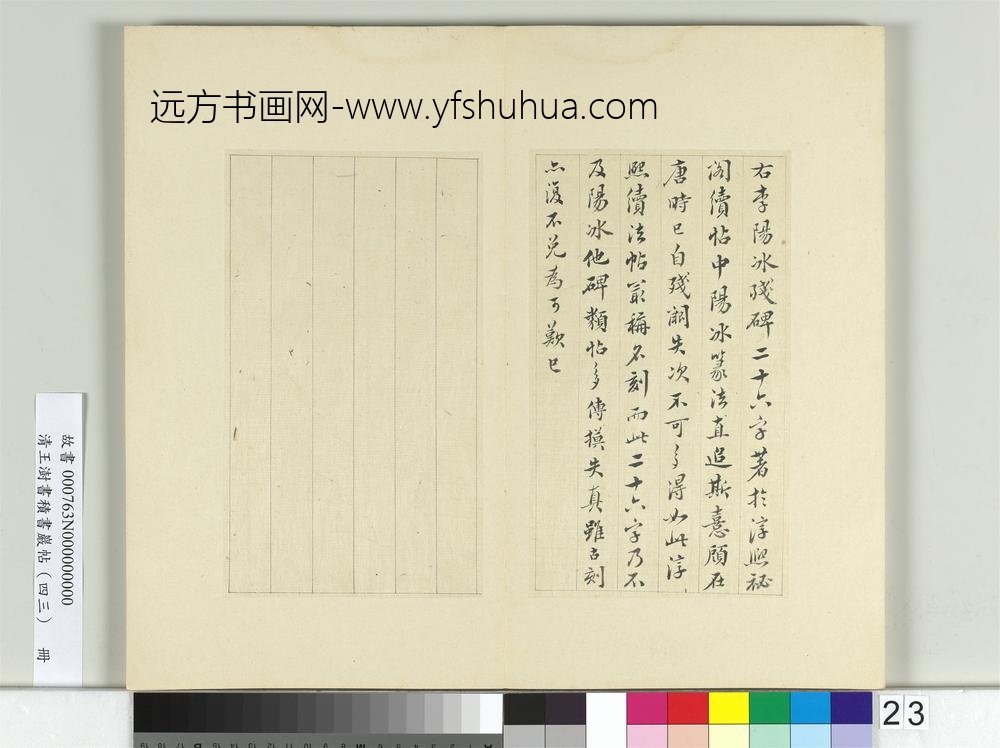 远方书画网-www.yfshuhua.com
右李陽冰殘碑二十六字著於淳熙祕
閣續帖中陽冰篆法直追斯憙顧在
唐時已自殘闕失次不可多得如此淳
熙續法帖最稱名刻而此二十六字乃不
及陽冰他碑類帖多傳摸失真雖古刻
亦復不免為可歎已
故書 000763N000000000
清王澍書積書巖帖（四三） 冊
23